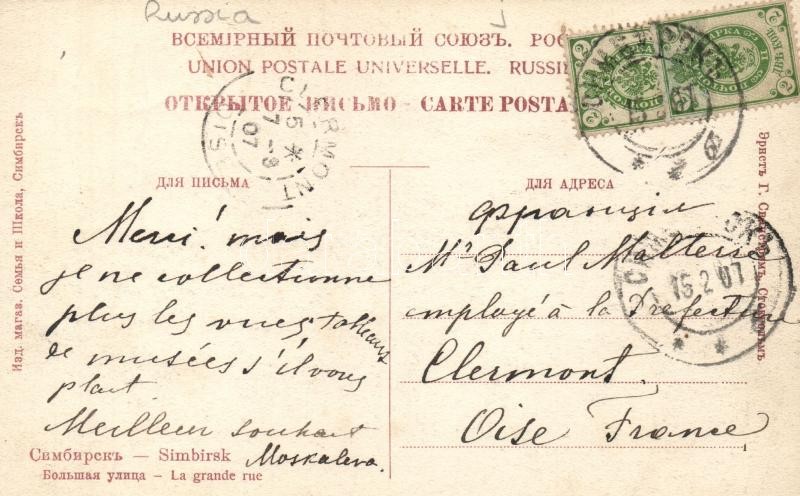 Russia
ВСЕМІРНЫЙ ПОЧТОВЫЙ СОЮЗЪ. РОС
UNION POSTALE UNIVERSELLE. RUSSI
ОТКРЫТОЕ ПИСЬМО - CARTE POSTA
CLERMONT
OISE
7 -3
07
2
2
СИМБИРСКЪ
ДЛЯ ПИСЬМА
ДЛЯ АДРЕСА
Merci! mais
je ne collectionne
plus les vues, tableaux
de musées s'il vous
plait
Meilleur souhait
Moskaleva.
Франція
Mr Paul Malterre
employé à la Préfecture
Clermont
Oise France
15 2 07
Симбирскъ — Simbirsk
Большая улица — La grande rue
Изд. магаз. Семья и Школа, Симбирскъ
Эрнстъ Г.